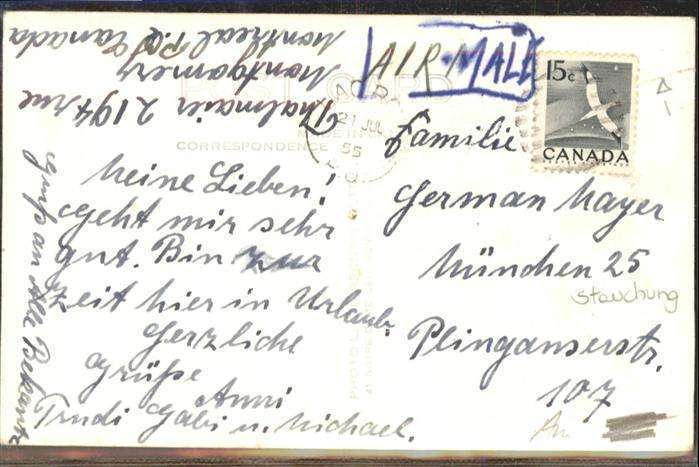 Thalmaier 2194 rue
Montgomery
Montreal P.Q Canada
AIR MAIL
15c
CANADA
POST CARD
CORRESPONDENCE
21 JUL
55
Meine Lieben!
geht mir sehr
gut. Bin zur
Zeit hier in Urlaub.
Herzliche
Grüße
Anni
Trudi Gabi u. Michael.
gruß an Alle Bekannte
Familie
German Mayer
München 25
Plinganserstr.
107
Stauchung